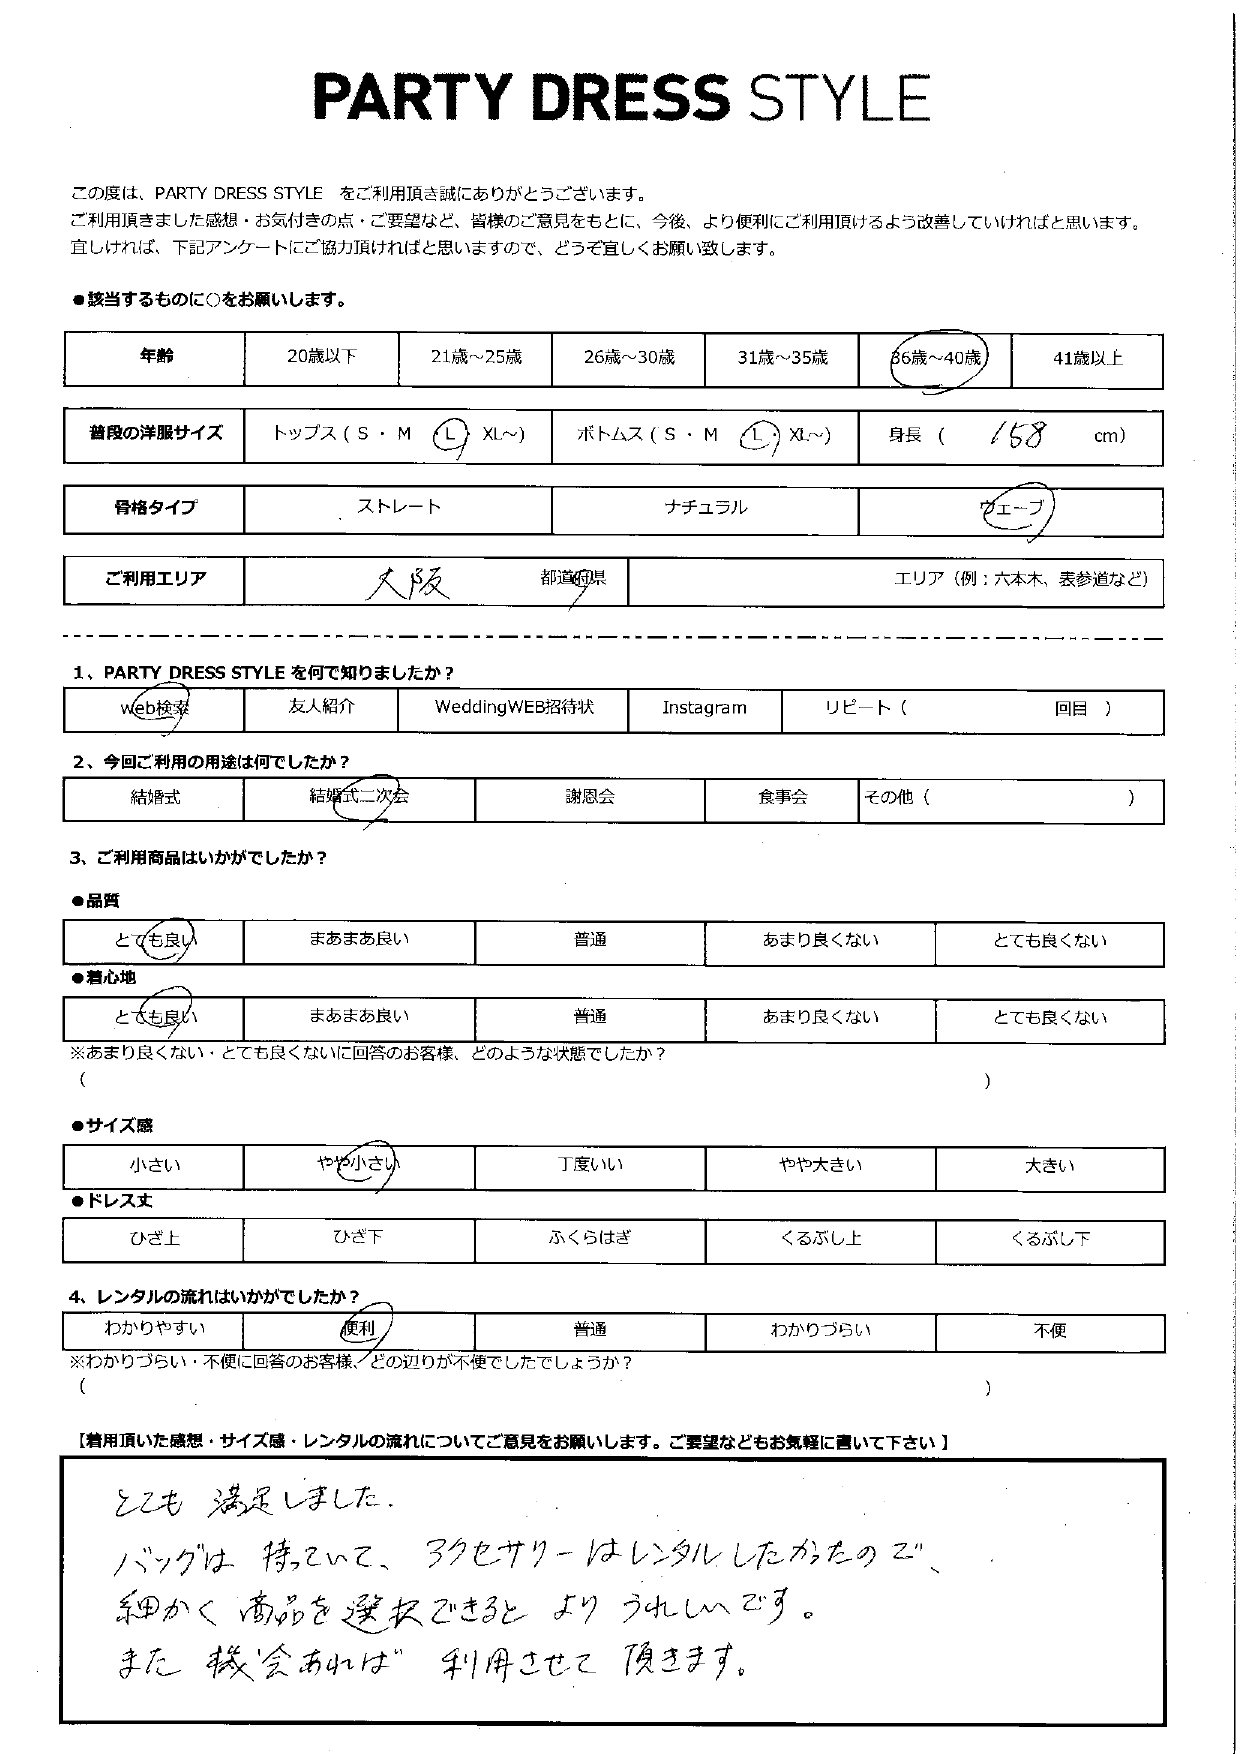 PARTY DRESS STYLE
この度は、PARTY DRESS STYLE をご利用頂き誠にありがとうございます。
ご利用頂きました感想・お気付きの点・ご要望など、皆様のご意見をもとに、今後、より便利にご利用頂けるよう改善していければと思います。
宜しければ、下記アンケートにご協力頂ければと思いますので、どうぞ宜しくお願い致します。
●該当するものに○をお願いします。
年齢 20歳以下 21歳～25歳 26歳～30歳 31歳～35歳 36歳～40歳 41歳以上
普段の洋服サイズ トップス ( S ・ M ・ L ・ XL～) ボトムス ( S ・ M ・ L ・ XL～) 身長 ( 158 cm)
骨格タイプ ストレート ナチュラル ウェーブ
ご利用エリア 大阪 都道府県 エリア（例：六本木、表参道など）
1、PARTY DRESS STYLE を何で知りましたか？
web検索 友人紹介 WeddingWEB招待状 Instagram リピート（ 回目 ）
2、今回ご利用の用途は何でしたか？
結婚式 結婚式二次会 謝恩会 食事会 その他（ ）
3、ご利用商品はいかがでしたか？
●品質
とても良い まあまあ良い 普通 あまり良くない とても良くない
●着心地
とても良い まあまあ良い 普通 あまり良くない とても良くない
※あまり良くない・とても良くないに回答のお客様、どのような状態でしたか？
( )
●サイズ感
小さい やや小さい 丁度いい やや大きい 大きい
●ドレス丈
ひざ上 ひざ下 ふくらはぎ くるぶし上 くるぶし下
4、レンタルの流れはいかがでしたか？
わかりやすい 便利 普通 わかりづらい 不便
※わかりづらい・不便に回答のお客様、どの辺りが不便でしたでしょうか？
( )
【着用頂いた感想・サイズ感・レンタルの流れについてご意見をお願いします。ご要望などもお気軽に書いて下さい】
とても 満足しました.
バッグは 持っていて、アクセサリーはレンタルしたかったので、
細かく 商品を選択できると より うれしいです。
また 機会あれば 利用させて 頂きます。